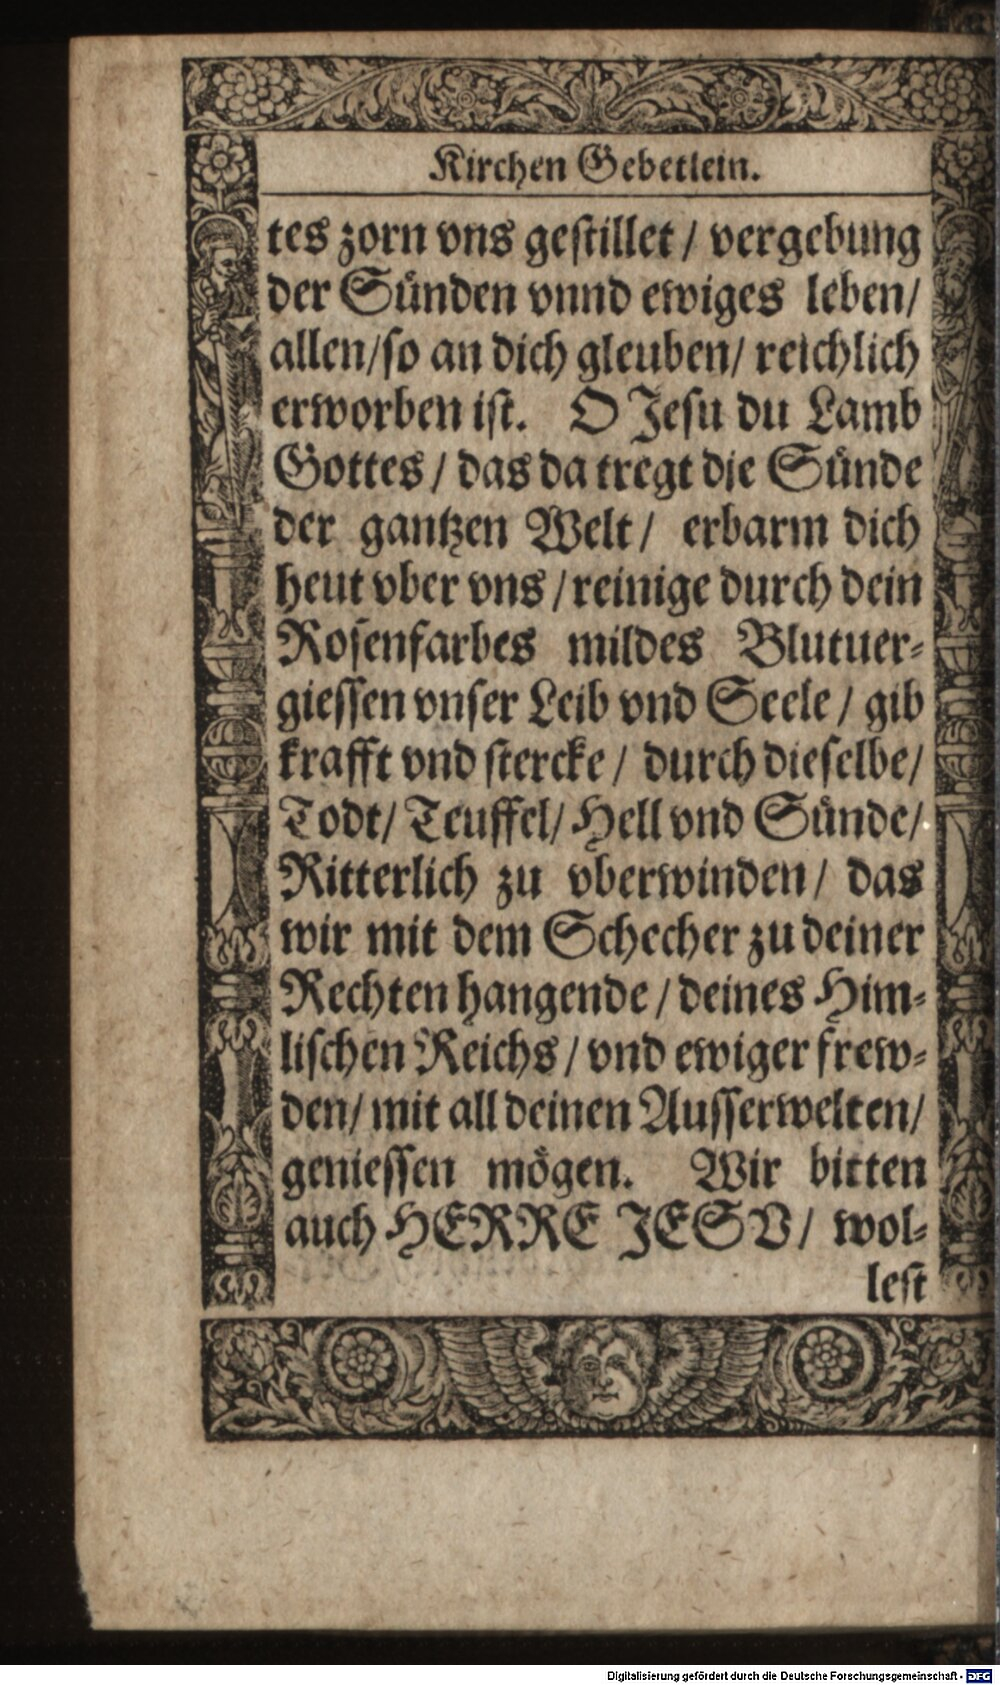 Kirchen Gebetlein.
tes zorn vns gestillet / vergebung
der Sünden vnnd ewiges leben/
allen/so an dich gleuben/ reichlich
erworben ist. O Jesu du Lamb
Gottes / das da tregt die Sünde
der gantzen Welt/ erbarm dich
heut vber vns / reinige durch dein
Rosenfarbes mildes Blutuer-
giessen vnser Leib vnd Seele / gib
krafft vnd stercke / durch dieselbe/
Todt/ Teuffel/ Hell vnd Sünde/
Ritterlich zu vberwinden / das
wir mit dem Schecher zu deiner
Rechten hangende / deines Him-
lischen Reichs / vnd ewiger frew-
den/ mit all deinen Ausserwelten/
geniessen mögen. Wir bitten
auch HERRE JESV/ wol-
lest
Digitalisierung gefördert durch die Deutsche Forschungsgemeinschaft - DFG